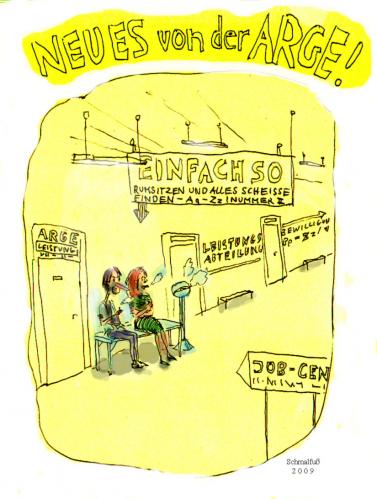 NEUES von der ARGE!
EINFACH SO
RUMSITZEN UND ALLES SCHEISSE
FINDEN - Aa - Zz ! NUMMER Z
ARGE
LEISTUNG
LEISTUNGS
ABTEILUNG
BEWILLIGUN
JOB-CEN
Schmalfuß
2009